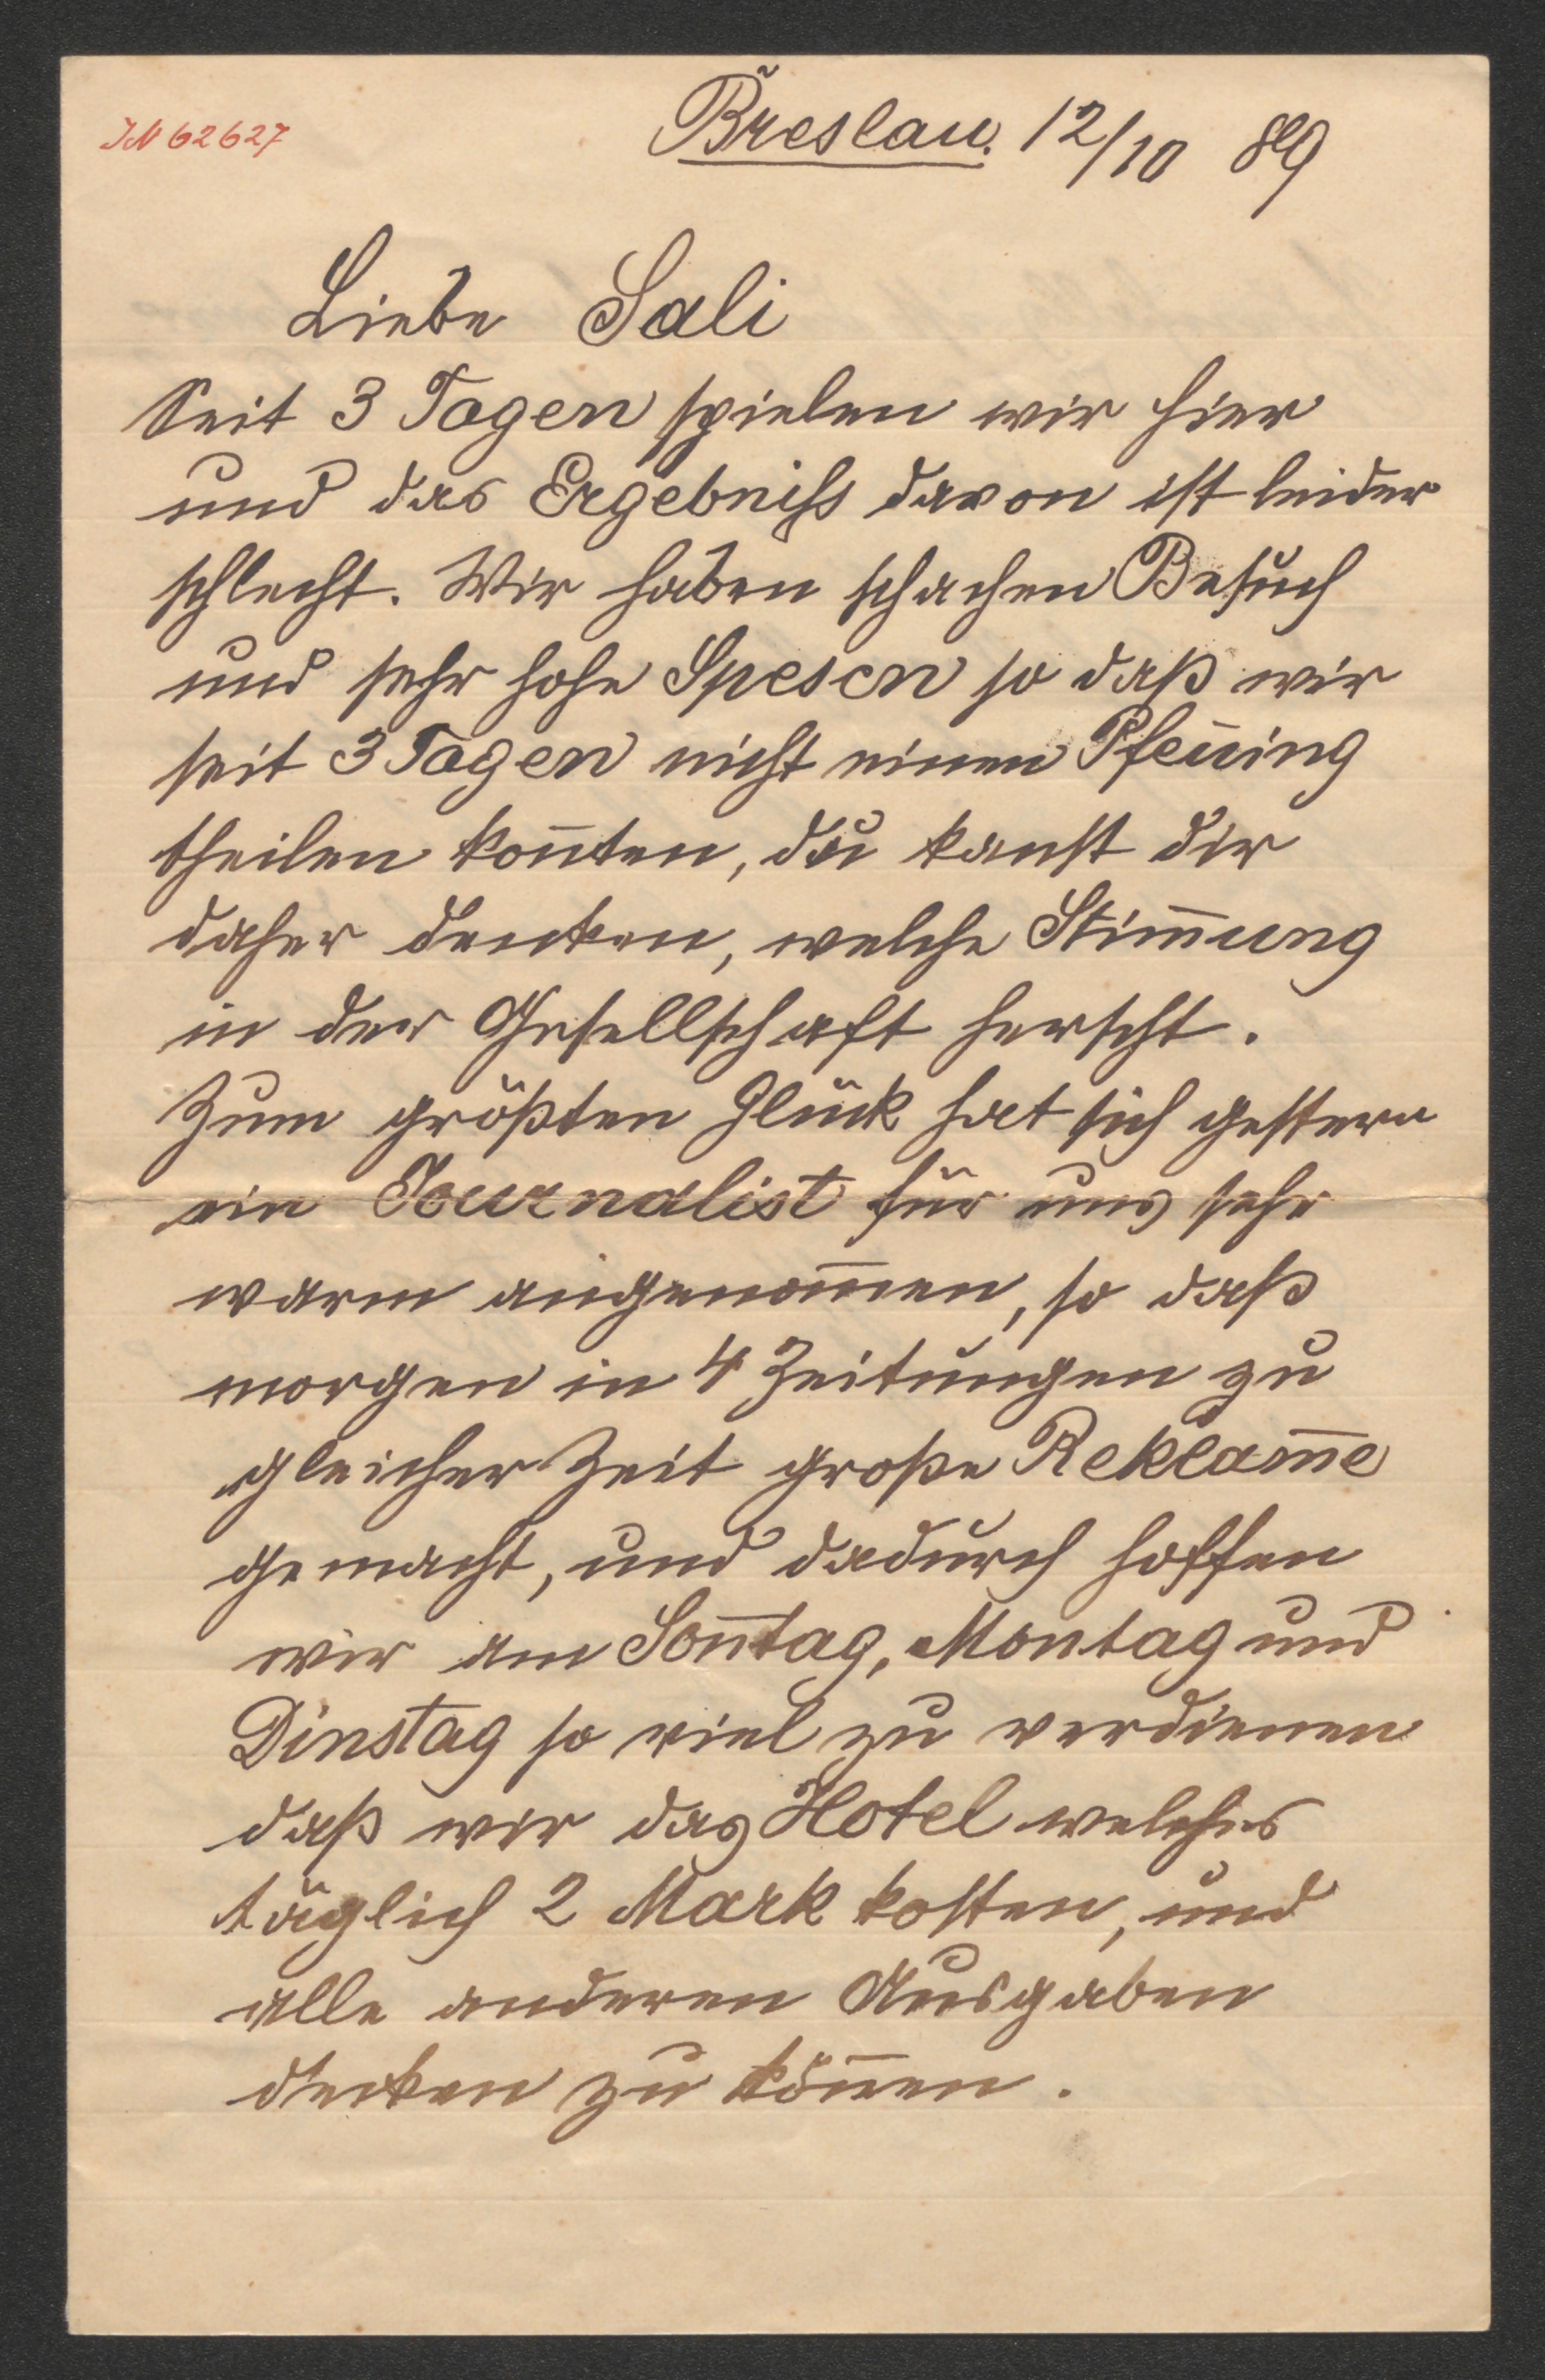 IN 62627
Breslau. 12/10 89
Liebe Sali
Seit 3 Tagen spielen wir hier
und das Ergebniss davon ist leider
schlecht. Wir haben schachen Besuch
und sehr hohe Spesen so daß wir
seit 3 Tagen nicht einen Pfen̄ing
theilen kon̄ten, du kanst dir
daher denken, welche Stim̄ung
in der Gesellschaft herscht.
Zum größten Glück hat sich gestern
ein Journalist für uns sehr
warm angenom̄en, so daß
morgen in 4 Zeitungen zu
gleicher Zeit große Reklam̄e
gemacht, und dadurch hoffen
wir am Son̄tag, Montag und
Dinstag so viel zu verdienen
daß wir das Hotel welches
täglich 2 Mark kosten, und
alle anderen Ausgaben
decken zu kön̄en.